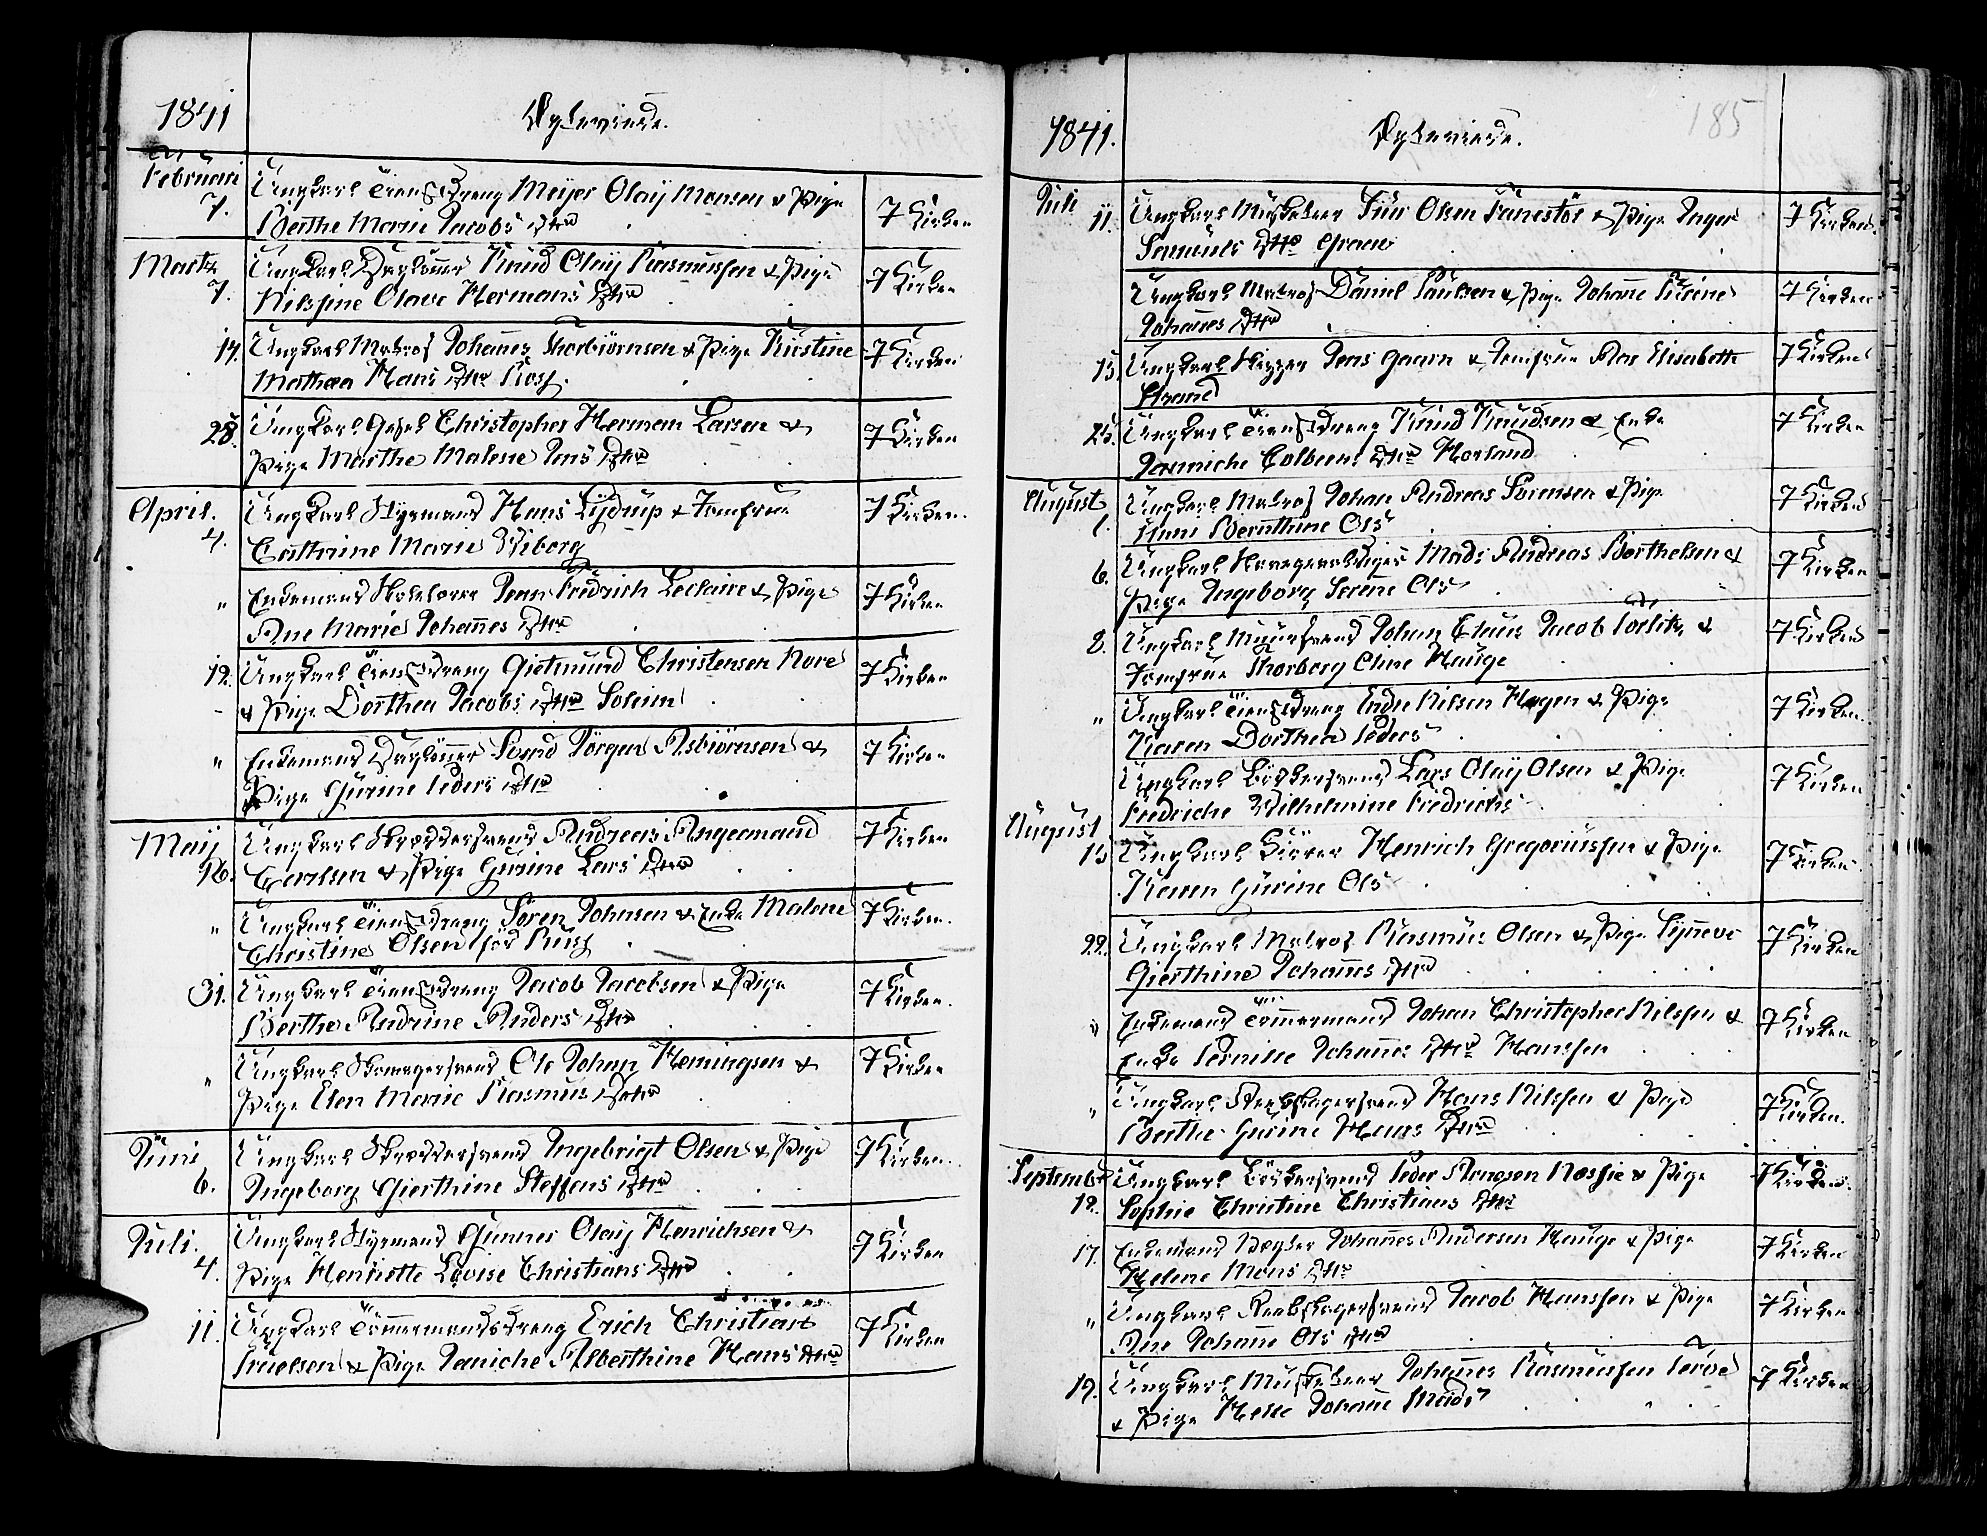 1841
Ægteviede.
Februari
7.
Ungkarl Tienestdreng Meyer Olaij Monsen & Pige
Berthe Marie Jacobs Dttr
I Kirken
Martz
7.
Ungkarl Dagleÿer Knud Olaij Rasmussen & Pige
Nilssine Olave Hermans Dttr
I Kirken
14.
Ungkarl Matros Johannes Thorbiörnsen & Pige Kirstine
Mathea Hans Dttr Ross.
I Kirken
28.
Ungkarl Gesel Christopher Herman Larsen &
Pige Marthe Malene Jens Dttr
I Kirken
April.
4.
Ungkarl Styrmand Hans Lydrup & Jomfrue
Cathrine Marie Wiborg
I Kirken
"
Enkemand Skolelærer Jean Fredrich Leclaire & Pige
Ane Marie Johannes Dttr
I Kirken
12.
Ungkarl Tienestdreng Giertmund Christensen Hove
& Pige Dorthea Jacobs Dttr Soleim
I Kirken
"
Enkemand Dagleÿer Svend Jörgen Asbiörnsen &
Pige Gurine Peders Dttr
I Kirken
Maij
16.
Ungkarl Skræddersvend Andreas Angermand
& Pige Gurine Lars Dttr
I Kirken
"
Ungkarl Tienestdreng Sören Johnsen & Enke Malene
Christine Olsen föd Russ
I Kirken.
31.
Ungkarl Tienestdreng Jacob Jacobsen & Pige
Berthe Andrine Anders Dttr
I Kirken.
"
Ungkarl Skomagersvend Ole Johan Hemingsen &
Pige Elen Marie Rasmus Dottr
I Kirken
Juni
6.
Ungkarl Skræddersvend Ingebrigt Olsen & Pige
Ingeborg Gierthine Steffens Dttr
I Kirken.
Juli.
4.
Ungkarl Styrmand Gunner Olaij Henrichsen &
Pige Henriette Lovise Christians Dttr
I Kirken
11.
Ungkarl Tömmermandsdreng Erich Christian
Truelsen & Pige Janiche Alberthine Hans Dttr
I Kirken
1841.
Ægteviede.
185
Juli
11.
Ungkarl Musketeer Siur Olsen & Pige Inger
Samuels Dttr Graue
I Kirken.
Ungkarl Matros Daniel Paulsen & Pige Johanne Sirine
Johannes Dttr
I Kirken
15.
Ungkarl Skipper Jens Gaarn & Jomfrue Ane Elisabeth
Strand
I Kirken
25.
Ungkarl Tienestdreng Knud Knudsen & Enke
Jasmiche Colbeens Dttr Horland
I Kirken
August
1.
Ungkarl Matros Johan Andreas Sörensen & Pige
Bernthine Ols
I Kirken
6.
Ungkarl Mads Andreas Berthelsen &
Pige Ingeborg Serene Ols
I Kirken
8.
Ungkarl Muursvend Johan Claus Jacob Porlitz &
Jomfrue Thorborg Eline Hauge
I Kirken
"
Ungkarl Tienestdreng Endre Nilsen Hagen & Pige
Karen Dorthea Peders
I Kirken.
Ungkarl Bödkersvend Lars Olaij Olsen & Pige
Fredriche Wilhelmine Fredrichs
I Kirken
August
15
Ungkarl Henrich Gregoriussen & Pige
Karen Gurine Ols
I Kirken
22.
Ungkarl Matros Rasmus Olsen & Pige Synneve
Gierthine Johannes Dttr
I Kirken
"
Enkemand Tömmermand Johan Christopher Nilssen &
Enke Pernille Johannes Dttr Hanssen
I Kirken
"
Ungkarl Reebslagersvend Hans Nilssen & Pige
Berthe Gurine Hans Dttr
I Kirken.
September
12.
Ungkarl Bödkersvend Peder Arnesen Næssie & Pige
Sophie Christine Christians Dttr
I Kirken.
17.
Enkemand Vægter Johannes Andersen Hauge & Pige
Helene Mons Dttr
I Kirken
"
Ungkarl Reebslagersvend Jacob Hanssen & Pige
Ane Johanne Ols Dttr
I Kirken
19.
Ungkarl Musketeer Johannes Rasmussen
& Pige Helle Johanne Mads
I Kirken